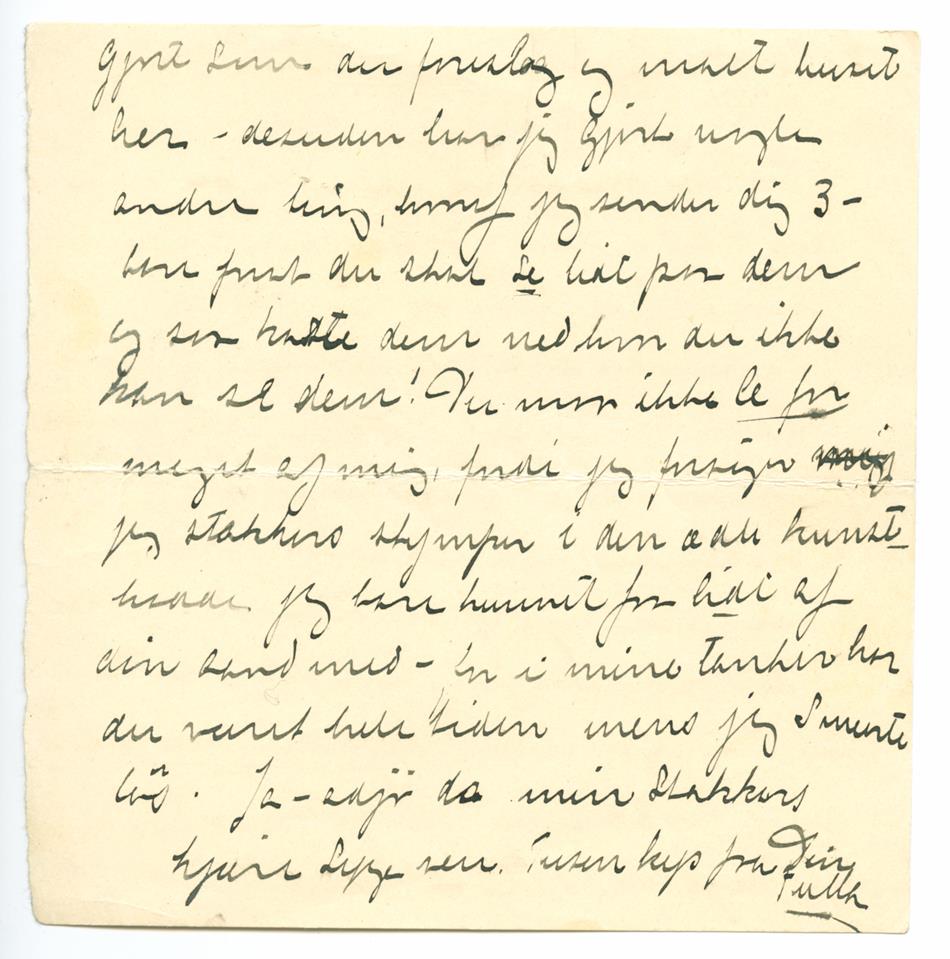 gjort som du foreslog og malt huset
her – desuden har jeg gjort nogle
andre ting, hvoraf jeg sender dig 3 –
bare forat du skal se lidt paa dem
og saa kaste dem ned hvor du ikke
kan se dem! Du maa ikke le for
meget af mig, fordi jeg forsøger
jeg stakkers stymper i den ædle kunst –
havde jeg bare kunnet faa lidt af
din aand med – for i mine tanker har
du været hele tiden mens jeg smurte
løs. Ja – adjø da min stakkars
kjære syge ven. Tusen kys fra Din
Tulla